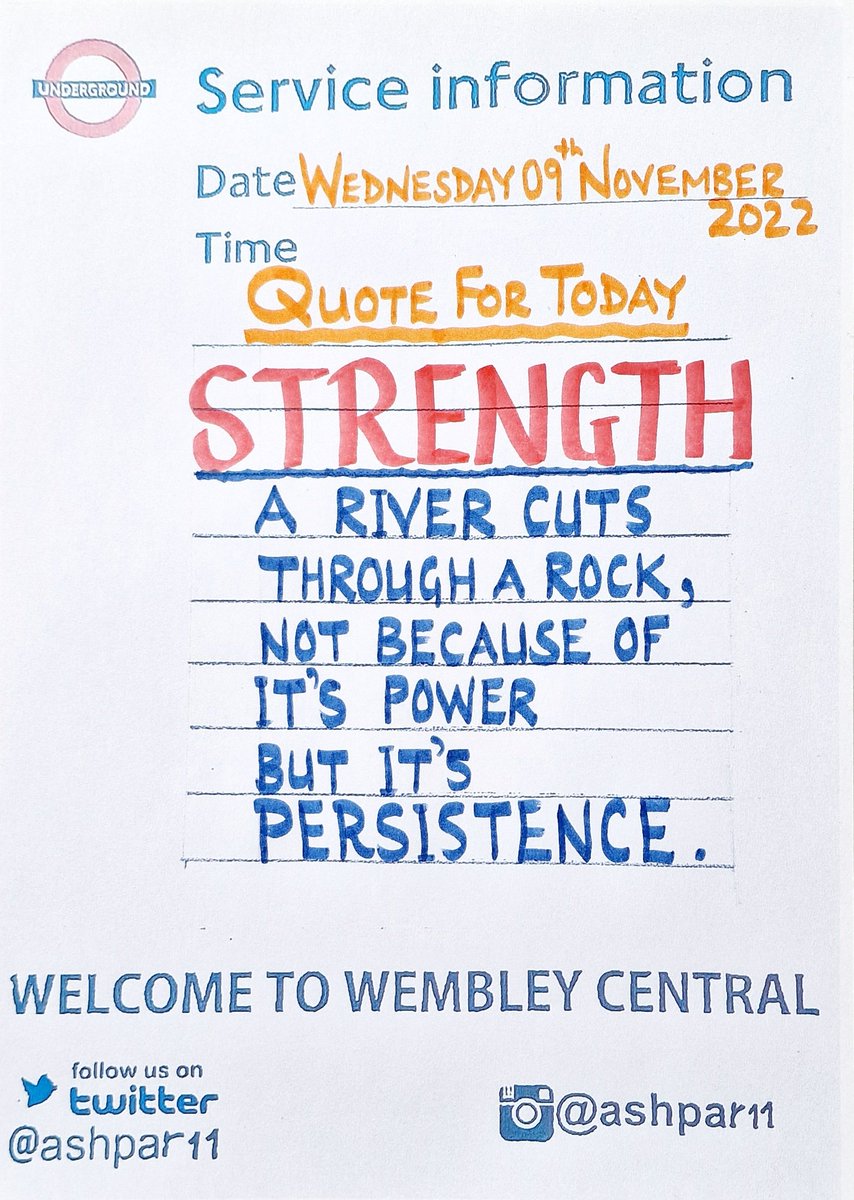 UNDERGROUND
Service information
Date WEDNESDAY 09th NOVEMBER
2022
Time
QUOTE FOR TODAY
STRENGTH
A RIVER CUTS
THROUGH A ROCK,
NOT BECAUSE OF
IT'S POWER
BUT IT'S
PERSISTENCE.
WELCOME TO WEMBLEY CENTRAL
follow us on
twitter
@ashpar11
@ashpar11